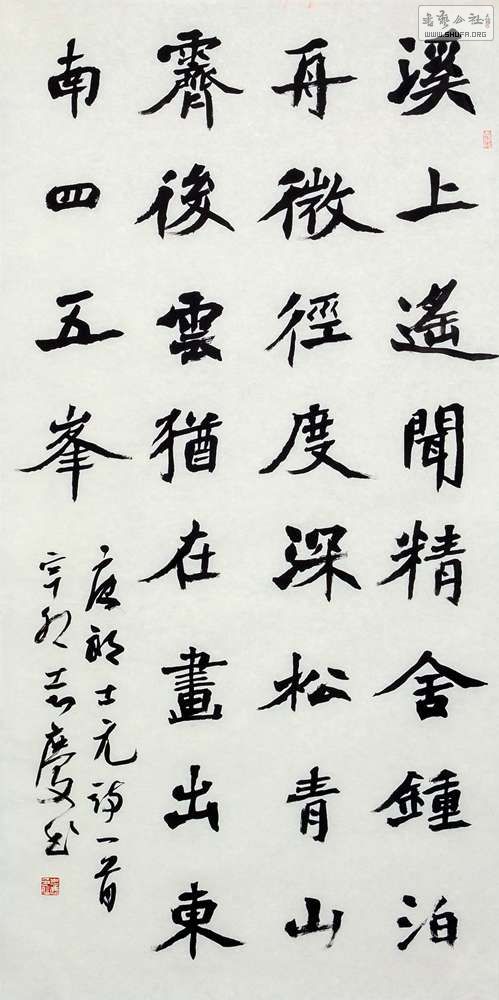 溪上遙聞精舍鍾泊
舟微徑度深松青山
霽後雲猶在畫出東
南四五峯
唐郎士元詩一首
辛卯志慶書
書藝公社
WWW.SHUFA.ORG